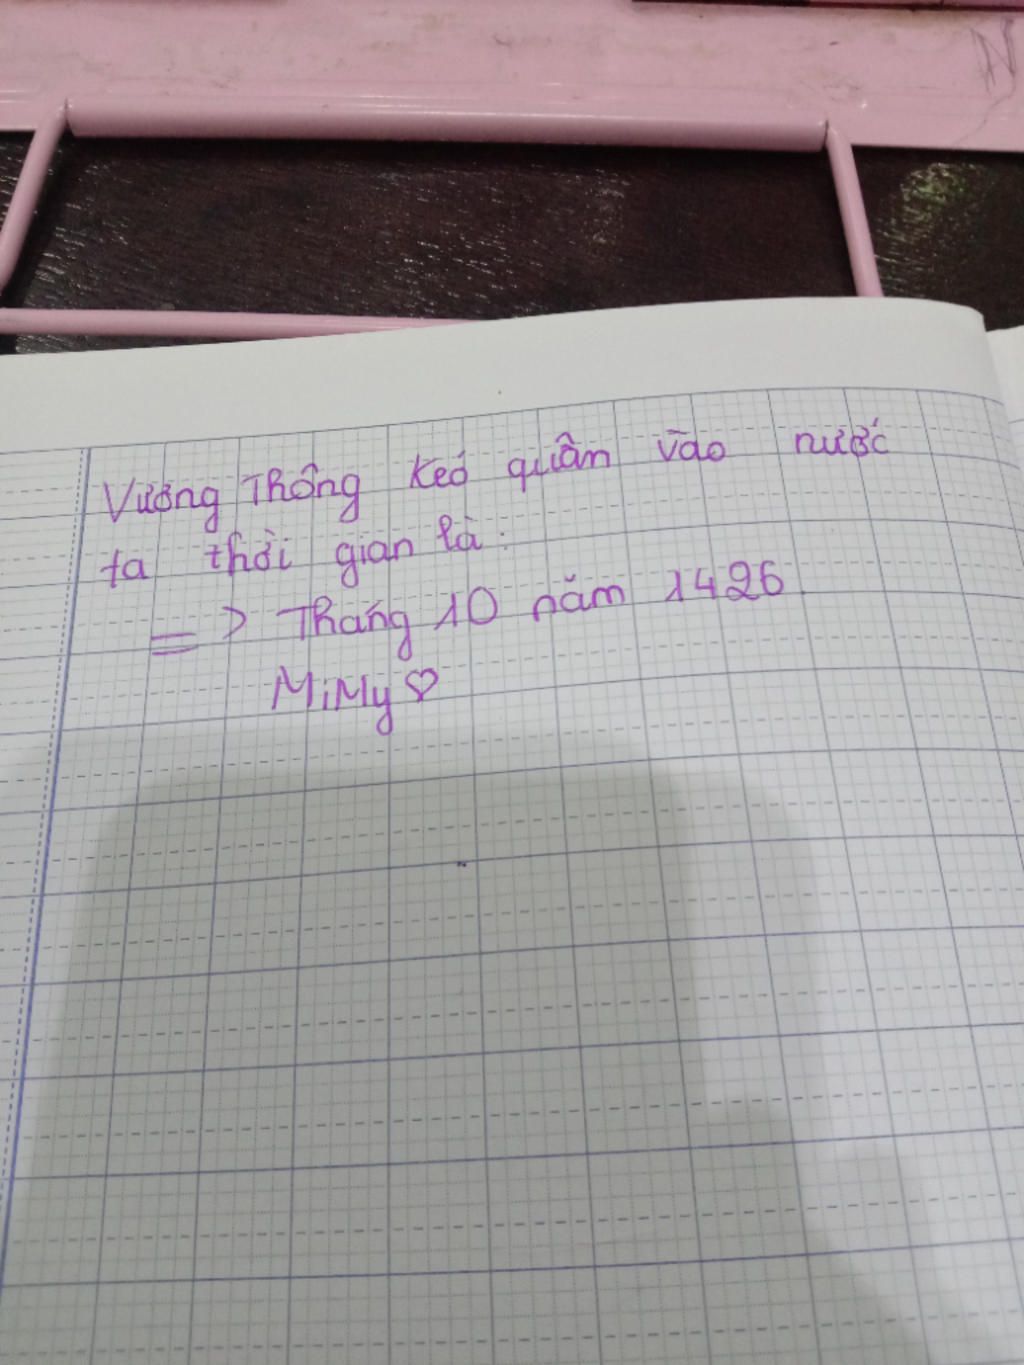 Vương Thông kéo quân vào nước
ta thời gian là:
=> Tháng 10 năm 1426.
MiMy♡
N